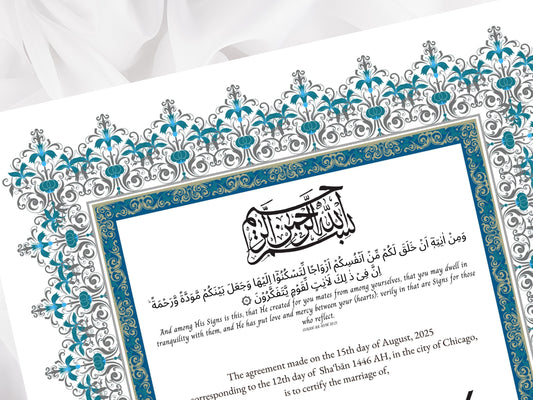 بسم الله الرحمن الرحيم
وَمِنْ اٰيٰتِهٖٓ اَنْ خَلَقَ لَكُمْ مِّنْ اَنْفُسِكُمْ اَزْوَاجًا لِّتَسْكُنُوْٓا اِلَيْهَا وَجَعَلَ بَيْنَكُمْ مَّوَدَّةً وَّرَحْمَةً ۗ
اِنَّ فِيْ ذٰلِكَ لَاٰيٰتٍ لِّقَوْمٍ يَّتَفَكَّرُوْنَ
And among His Signs is this, that He created for you mates from among yourselves, that you may dwell in
tranquility with them, and He has put love and mercy between your (hearts): verily in that are Signs for those
who reflect.
SURAH AR-RUM 30:21
The agreement made on the 15th day of August, 2025
corresponding to the 12th day of Shaʿbān 1446 AH, in the city of Chicago,
is to certify the marriage of,